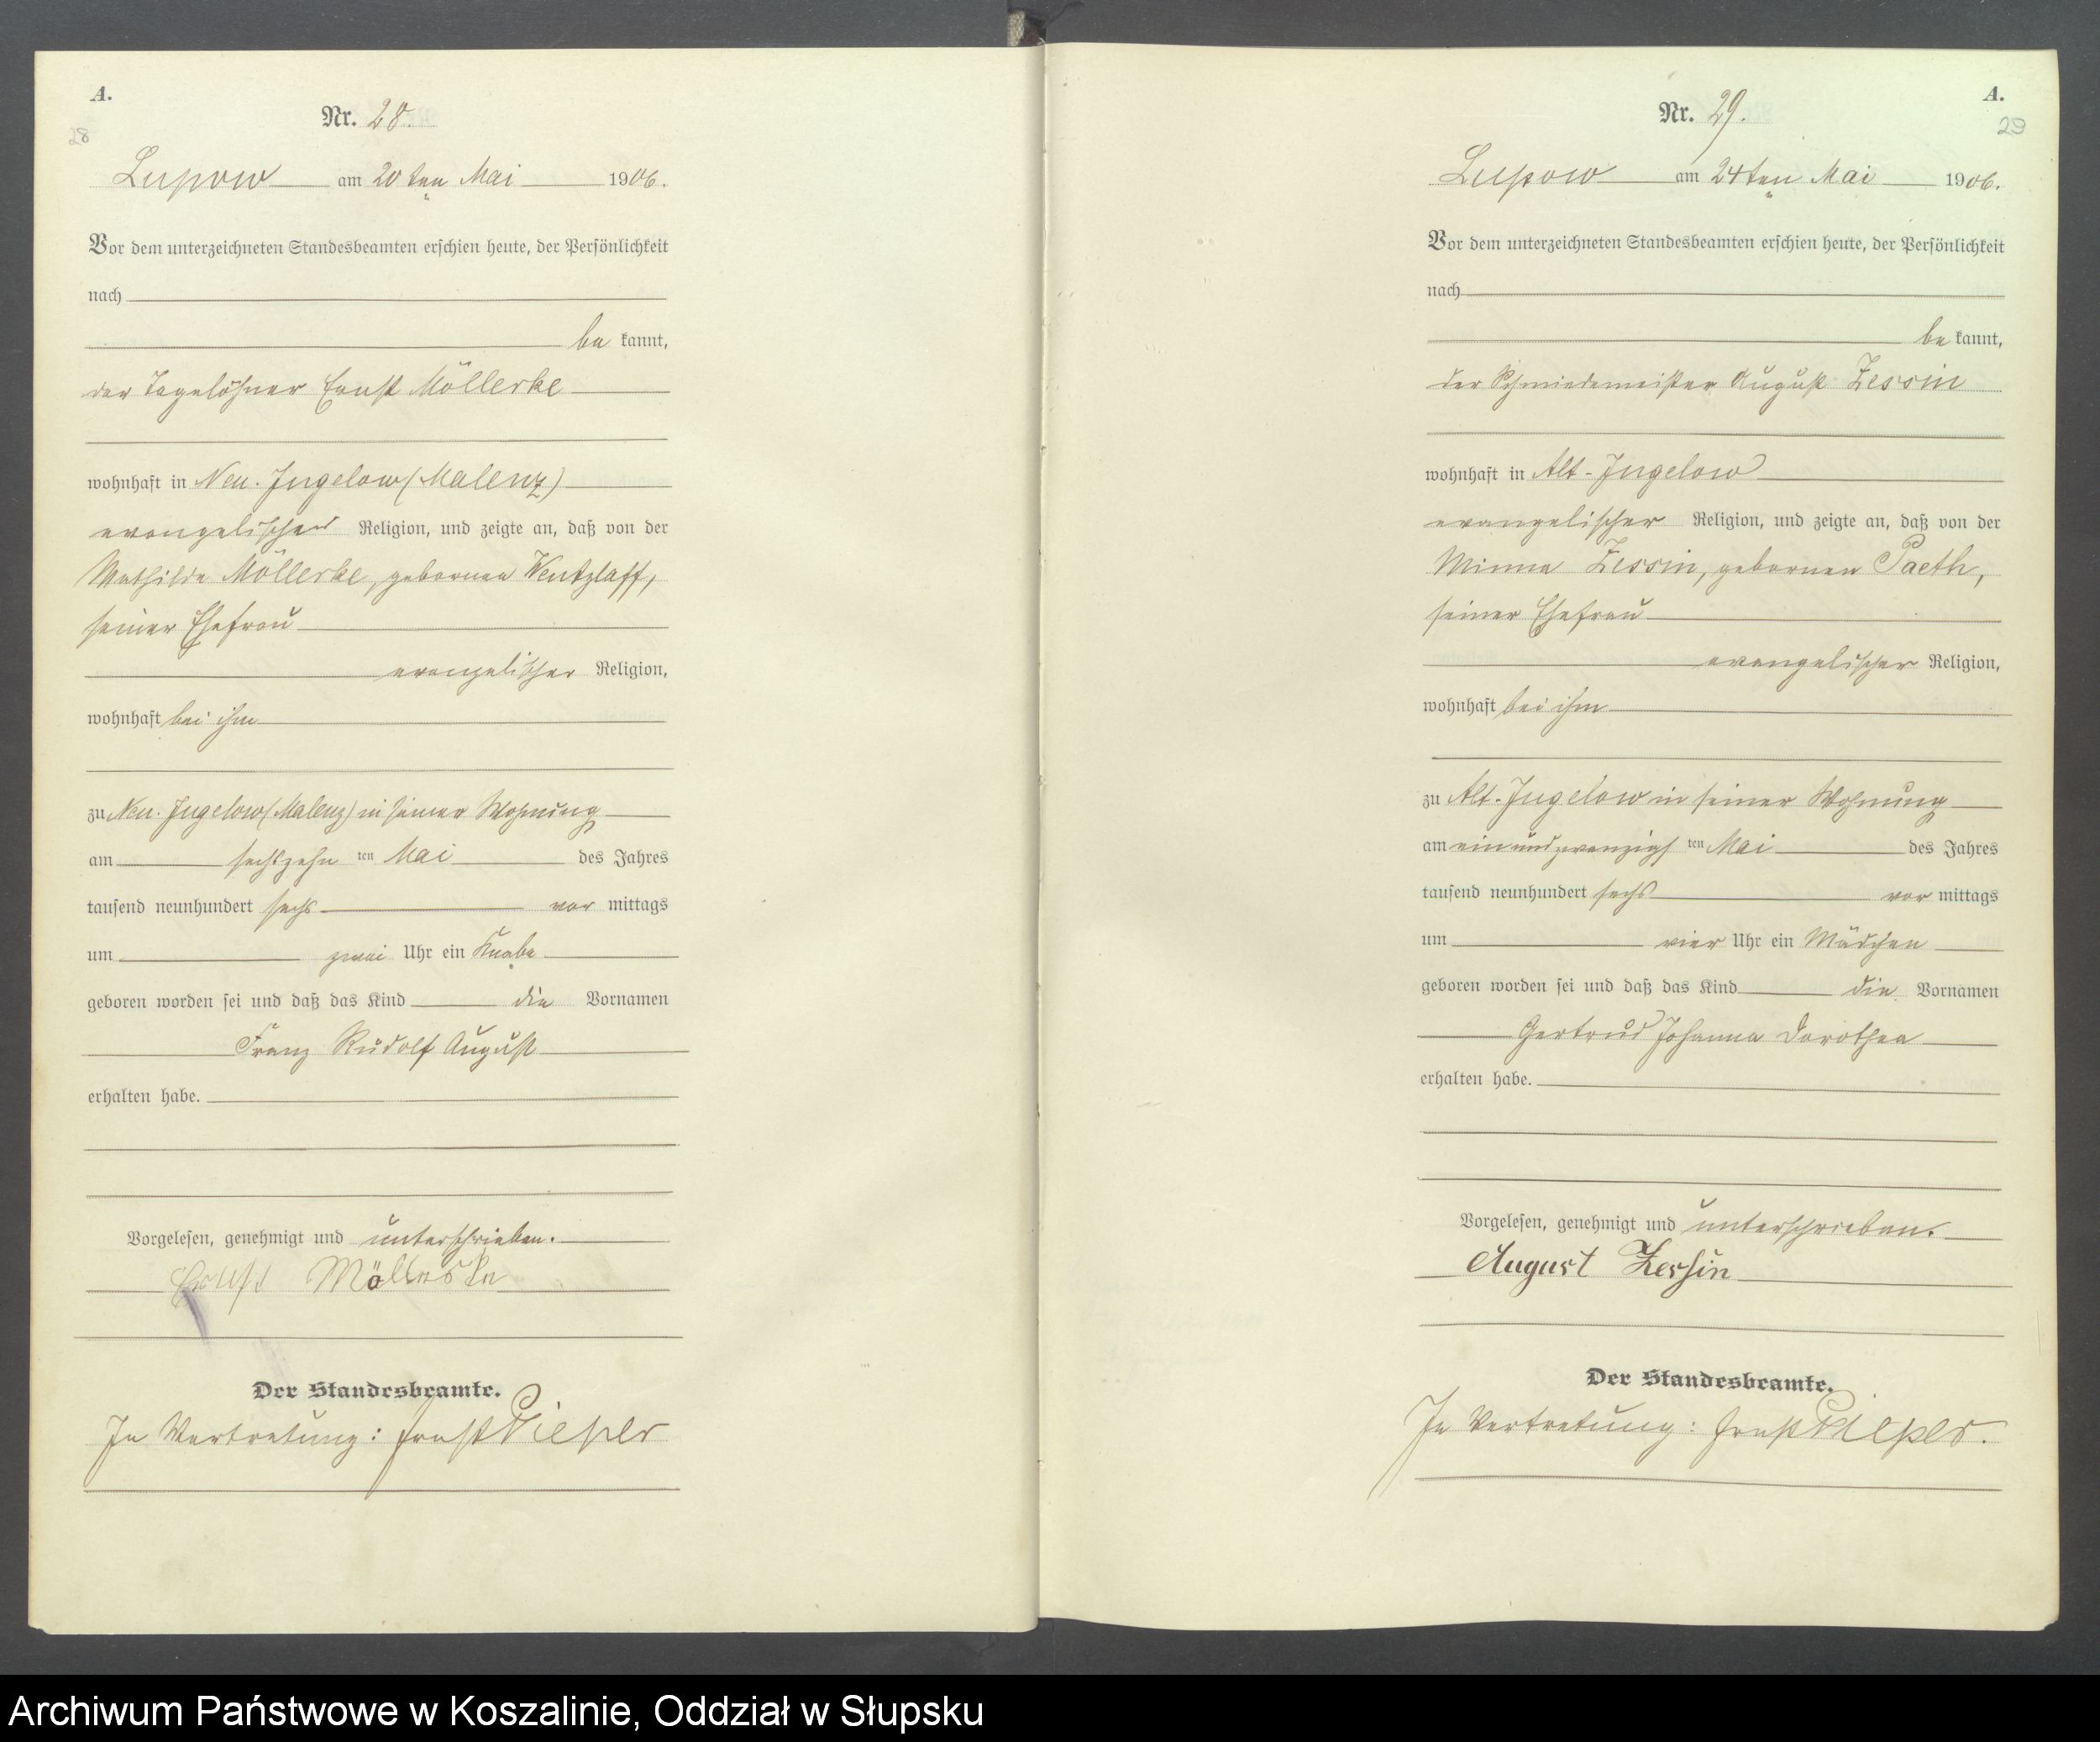 A.
28
Nr. 28.
Lupow am 20ten Mai 1906.
Vor dem unterzeichneten Standesbeamten erschien heute, der Persönlichkeit
nach
be kannt,
der Tagelöhner Ernst Möllerke
wohnhaft in Neu-Jugelow (Malenz)
evangelischer Religion, und zeigte an, daß von der
Mathilde Möllerke, gebornen Wentzlaff,
seiner Ehefrau
evangelischer Religion,
wohnhaft bei ihm
zu Neu-Jugelow (Malenz) in seiner Wohnung
am sechszehn ten Mai des Jahres
tausend neunhundert sechs vor mittags
um zwei Uhr ein Knabe
geboren worden sei und daß das Kind die Vornamen
Franz Rudolf August
erhalten habe.
Vorgelesen, genehmigt und unterschrieben.
Ernst Möllerke
Der Standesbeamte.
In Vertretung: Ernst Pieper
A.
29
Nr. 29.
Lupow am 24ten Mai 1906.
Vor dem unterzeichneten Standesbeamten erschien heute, der Persönlichkeit
nach
be kannt,
der Schmiedemeister August Zessin
wohnhaft in Alt-Jugelow
evangelischer Religion, und zeigte an, daß von der
Minna Zessin, gebornen Paeth,
seiner Ehefrau
evangelischer Religion,
wohnhaft bei ihm
zu Alt-Jugelow in seiner Wohnung
am einundzwanzigs ten Mai des Jahres
tausend neunhundert sechs vor mittags
um vier Uhr ein Mädchen
geboren worden sei und daß das Kind die Vornamen
Gertrud Johanna Dorothea
erhalten habe.
Vorgelesen, genehmigt und unterschrieben.
August Zessin
Der Standesbeamte.
In Vertretung: Ernst Pieper.
Archiwum Państwowe w Koszalinie, Oddział w Słupsku